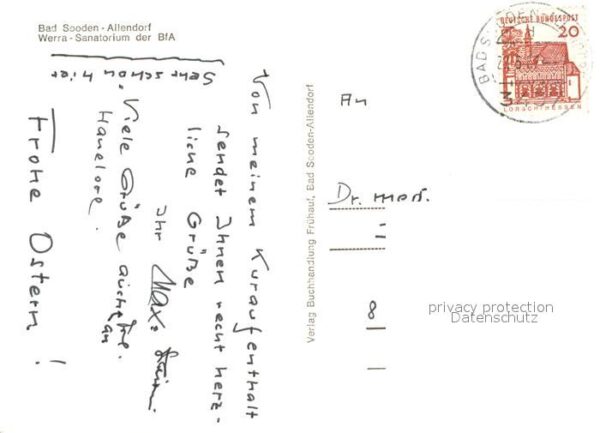 Bad Sooden - Allendorf
Werra - Sanatorium der BfA
Von meinem Kuraufenthalt
sendet Ihnen recht herz-
liche Grüße
Ihr Max
Viele Grüße auch
Hanelore.
Frohe Ostern!
Sehr schön hier
Verlag Buchhandlung Frühauf, Bad Sooden-Allendorf
An
Dr. med.
8
DEUTSCHE BUNDESPOST
20
LORSCH/HESSEN
BAD SOODEN
privacy protection
Datenschutz